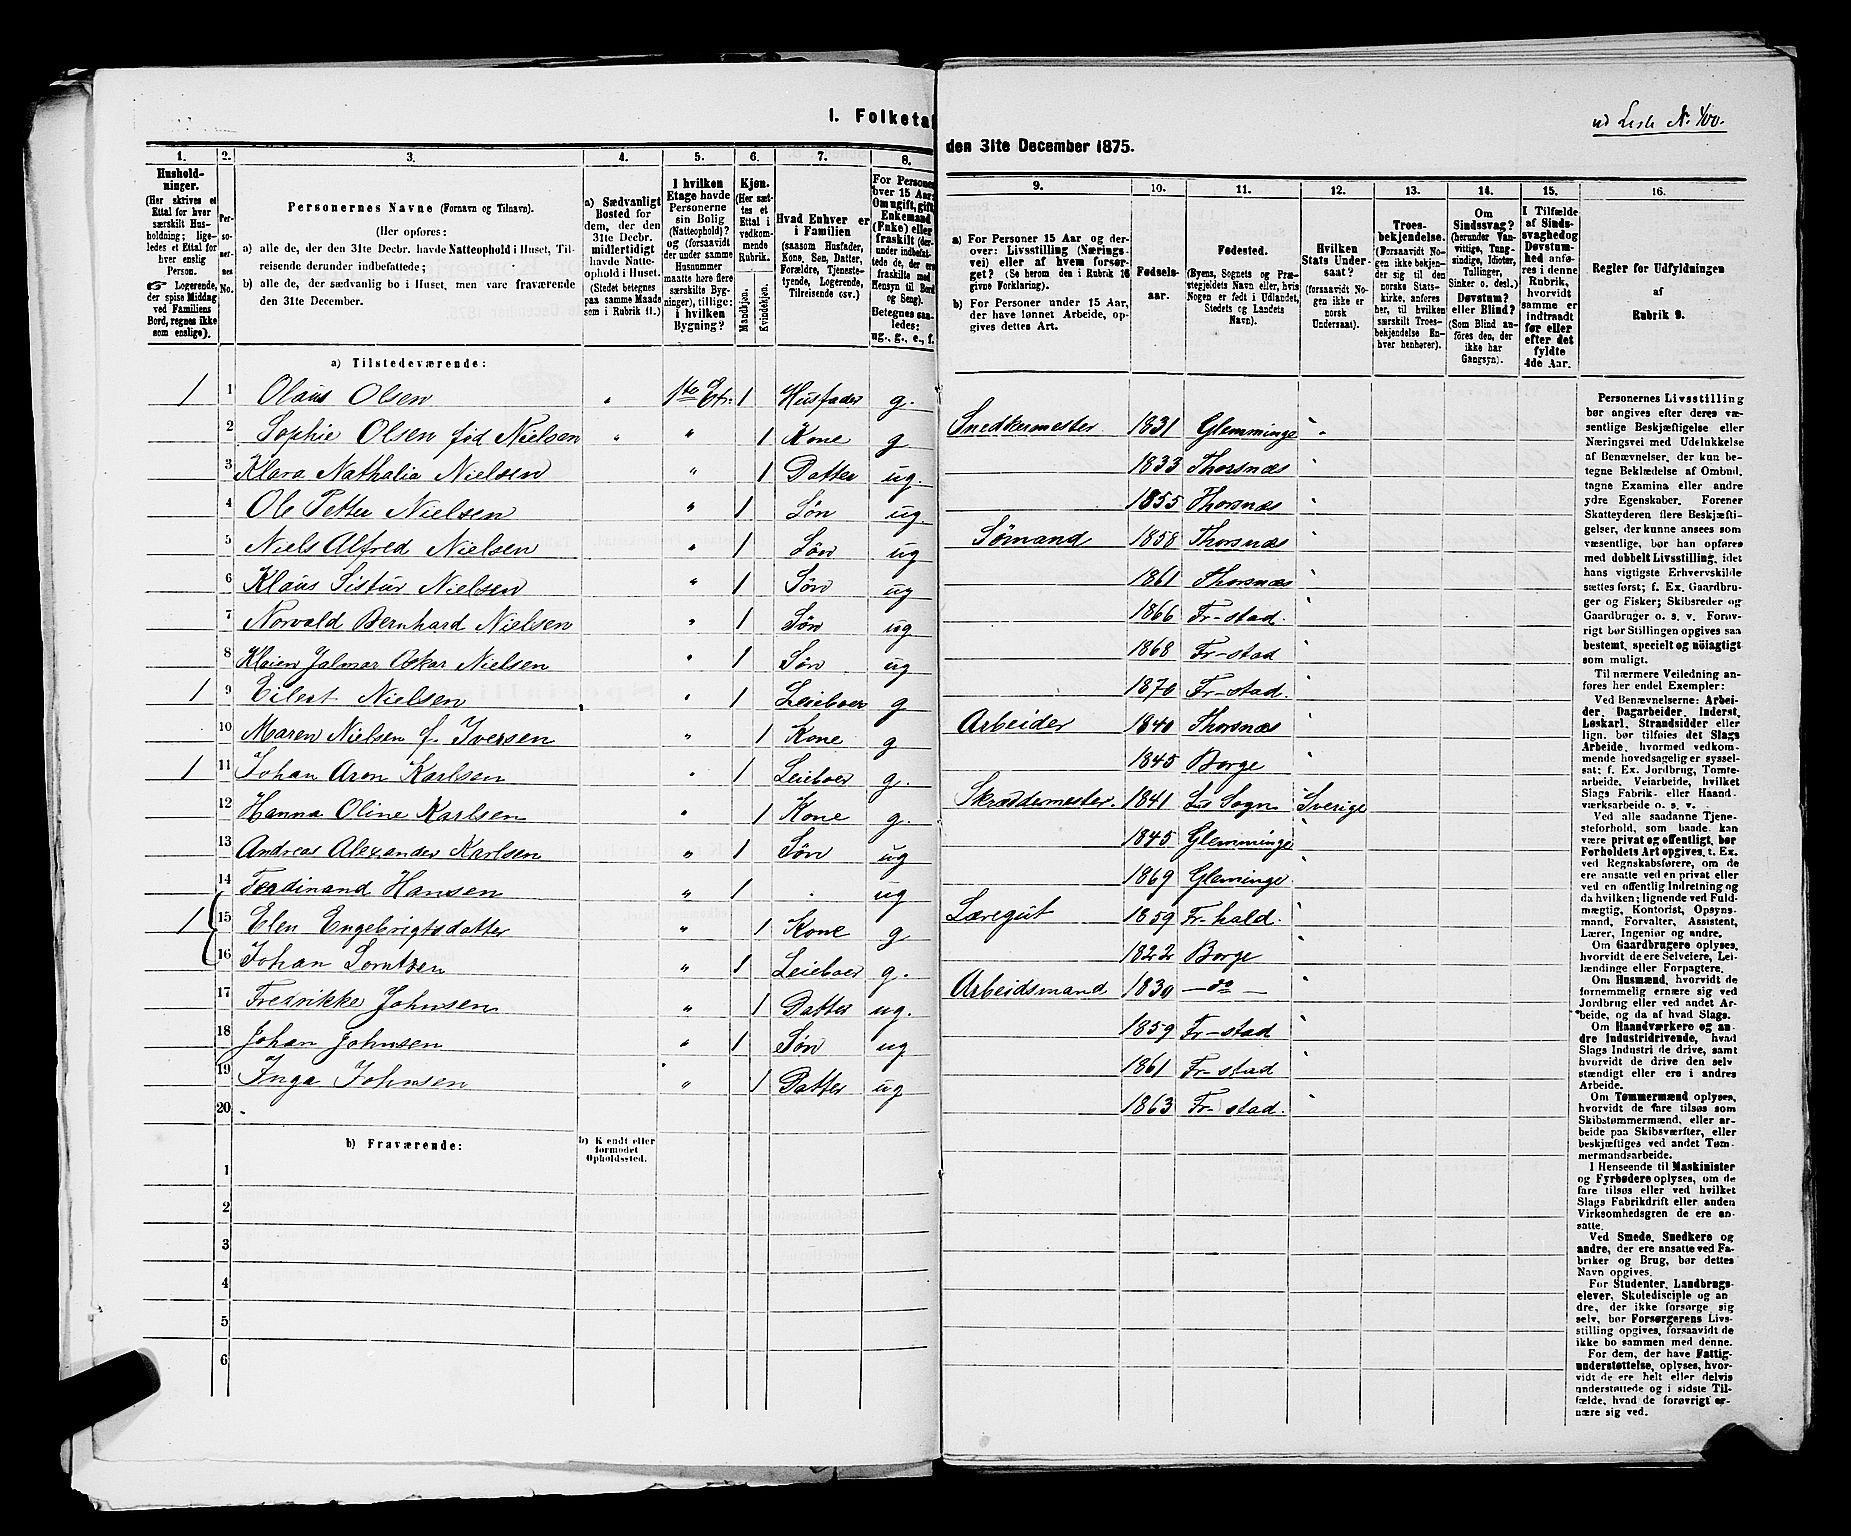 I. Folketal
1. 2. 3. 4. 5. 6. 7. 8.
Hushold-
ninger.
(Her skrives et
Ettal for hver
særskilt Hus-
holdning; lige-
ledes et Ettal for
hver enslig
Person.
Logerende,
der spise Middag
ved Familiens
Bord, regnes ikke
som enslige).
Per-
so-
ner-
nes
No.
Personernes Navne (Fornavn og Tilnavn).
(Her opføres:
a) alle de, der den 31te Decbr. havde Natteophold i Huset, Til-
reisende derunder indbefattede;
b) alle de, der sædvanlig bo i Huset, men vare fraværende
den 31te December.
a) Sædvanligt
Bosted for
dem, der den
31te Decbr.
midlertidigt
havde Natte-
ophold i Huset.
(Stedet betegnes
paa samme Maade
som i Rubrik 11.)
I hvilken
Etage havde
Personerne
sin Bolig
(Natteophold)?
og (forsaavidt
der under samme
Husnummer
maatte høre flere
særskilte Byg-
ninger), tillige:
i hvilken
Bygning?
Kjøn.
(Her sæt-
tes et
Ettal i
vedkom-
mende
Rubrik.
Mandkjøn.
Kvindekjøn.
Hvad Enhver er
i Familien
(saasom Husfader,
Kone, Søn, Datter,
Forældre, Tjeneste-
tyende, Logerende,
Tilreisende osv.)
For Personer
over 15 Aar:
Om ugift, gift,
Enkemand
(Enke) eller
fraskilt
Betegnes saa-
ledes:
ug., g., e., f.
a) Tilstedeværende:
1 1 Olaus Olsen 1ste Et. 1 Husfader g.
2 Sophie Olsen fød Nielsen " 1 Kone g
3 Klara Nathalia Nielsen " 1 Datter ug.
4 Ole Petter Nielsen " 1 Søn ug.
5 Niels Alfred Nielsen " 1 Søn ug
6 Klaus Sistur Nielsen " 1 Søn ug
7 Norvald Bernhard Nielsen " 1 Søn ug
8 Jalmar Oskar Nielsen " 1 Søn ug
1 9 Eilert Nielsen " 1 Leieboer g
10 Maren Nielsen f. Iversen " 1 Kone g
1 11 Johan Aron Karlsen " 1 Leieboer g.
12 Hanna Oline Karlsen " 1 Kone g.
13 Andreas Alexander Karlsen " 1 Søn ug
14 Ferdinand Hansen " 1 ug
1 15 Elen Engebrigtsdatter " 1 Kone g
16 Johan Lorntsen " 1 Leieboer g.
17 Fredrikke Johnsen " 1 Datter ug.
18 Johan Johnsen " 1 Søn ug
19 Inga Johnsen " 1 Datter ug
20
b) Fraværende:
b) Kjendt eller
formodet
Opholdssted.
1
2
3
4
5
6
ud Liste No. 400.
den 31te December 1875.
9. 10. 11. 12. 13. 14. 15. 16.
a) For Personer 15 Aar og der-
over: Livsstilling (Nærings-
vei) eller af hvem forsør-
get? (Se herom den i Rubrik 16
givne Forklaring).
b) For Personer under 15 Aar,
der have lønnet Arbeide, op-
gives dettes Art.
Fødsels-
aar.
Fødested.
(Byens, Sognets og Præ-
stegjeldets Navn eller, hvis
Nogen er født i Udlandet,
Stedets og Landets
Navn).
Hvilken
Stats Under-
saat?
(forsaavidt No-
gen ikke er
norsk
Undersaat).
Troes-
bekjendelse.
(Forsaavidt No-
gen ikke bekjen-
der sig til den
norske Stats-
kirke, anføres
her, til hvilken
særskilt Troes-
bekjendelse En-
hver henhører).
Om
Sindssvag?
(herunder Van-
vittige, Tung-
sindige, Idioter,
Tullinger,
Sinker o. desl.)
Døvstum?
eller Blind?
(Som Blind an-
føres den, der
ikke har
Gangsyn).
I Tilfælde
af Sinds-
svaghed og
Døvstum-
hed anfø-
res i denne
Rubrik,
hvorvidt
samme er
indtraadt
før eller
efter det
fyldte
4de Aar.
Regler for Udfyldningen
af
Rubrik 9.
Snedkermester 1831 Glemminge "
1833 Thorsnæs
1855 Thorsnæs
Sømand 1858 Thorsnæs
1861 Thorsnæs
1866 Fr-stad.
1868 Fr-stad
1870 Fr-stad.
Arbeider 1840 Thorsnæs
1845 Borge
Skræddermester. 1841 Sogn Sverige
1845 Glemminge
1869 Gleminge.
Læregut 1859 Fr-hald.
1822 Borge
Arbeidsmand 1830 —do—
1859 Fr-stad
1861 Fr-stad
1863 Fr-stad.
Personernes Livsstilling
bør angives efter deres væ-
sentlige Beskjæftigelse eller
Næringsvei med Udelukkelse
af Benævnelser, der kun be-
tegne Beklædelse af Ombud,
tagne Examina eller andre
ydre Egenskaber. Forener
Skatteyderen flere Beskjæfti-
gelser, der kunne ansees som
væsentlige, bør han opføres
med dobbelt Livsstilling, idet
hans vigtigste Erhvervskilde
sættes først; f. Ex. Gaardbru-
ger og Fisker; Skibsreder og
Gaardbruger o. s. v. Forøv-
rigt bør Stillingen opgives saa
bestemt, specielt og nøiagtigt
som muligt.
Til nærmere Veiledning an-
føres her endel Exempler:
Ved Benævnelserne: Arbei-
der, Dagarbeider, Inderst,
Løskarl, Strandsidder eller
lign. bør tilføies det Slags
Arbeide, hvormed vedkom-
mende hovedsagelig er syssel-
sat; f. Ex. Jordbrug, Tomte-
arbeide, Veiarbeide, hvilket
Slags Fabrik- eller Haand-
værksarbeide o. s. v.
Ved alle saadanne Tjene-
steforhold, som baade kan
være privat og offentligt, bør
Forholdets Art opgives, t. Ex.
ved Regnskabsførere, om de
ere ansatte ved en privat eller
ved en offentlig Indretning og
da hvilken; lignende ved Fuld-
mægtig, Kontorist, Opsyns-
mand, Forvalter, Assistent,
Lærer, Ingeniør og andre.
Om Gaardbrugere oplyses,
hvorvidt de ere Selveiere, Lei-
lændinge eller Forpagtere.
Om Husmænd, hvorvidt de
fornemmelig ernære sig ved
Jordbrug eller ved andet Ar-
beide, og da af hvad Slags.
Om Haandværkere og an-
dre Industridrivende, hvad
Slags Industri de drive, samt
hvorvidt de drive den selv-
stændigt eller ere i andres
Arbeide.
Om Tømmermænd oplyses,
hvorvidt de fare tilsøs som
Skibstømmermænd, eller ar-
beide paa Skibsværfter, eller
beskjæftiges ved andet Tøm-
mermandsarbeide.
I Henseende til Maskinister
og Fyrbødere oplyses, om de
fare tilsøs eller ved hvilket
Slags Fabrikdrift eller anden
Virksomhedsgren de ere an-
satte.
Ved Smede, Snedkere og
andre, der ere ansatte ved Fa-
briker og Brug, bør dettes
Navn opgives.
For Studenter, Landbrugs-
elever, Skoledisciple og an-
dre, der ikke forsørge sig
selv, bør Forsørgerens Livs-
stilling opgives, forsaavidt de
ikke bo sammen med denne.
For dem, der have Fattig-
understøttelse, oplyses, hvor-
vidt de ere helt eller delvis
understøttede og i sidste Til-
fælde, hvad de forøvrigt er-
nære sig ved.